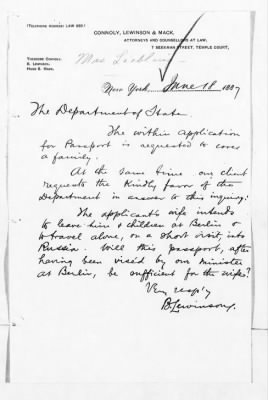 (TELEPHONE NUMBER: LAW 286.)
CONNOLY, LEWINSON & MACK,
ATTORNEYS AND COUNSELLORS AT LAW,
7 BEEKMAN STREET, TEMPLE COURT,
THEODORE CONNOLY,
B. LEWINSON,
HUGO S. MACK.
Max
New York, June 18 1887
The Department of State.
The within application
for Passport is requested to cover
a family.
At the same time our client
requests the kindly favor of the
Department in answer to this inquiry:
The applicant's wife intends
to leave him & children at Berlin &
to travel alone, on a short visit, into
Russia: Will this passport, after
having been visé'd by our minister
at Berlin, be sufficient for the wife?
Very resp'y
B. Lewinson